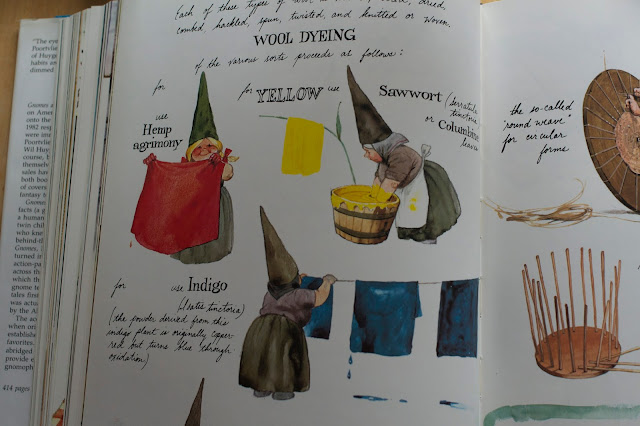 "The eye
Poortvlie
of Huyg
habits an
Gnomes a
on Ameri
onto the
1982 resp
were one
Poortvlie
Will Huy
course,
themselve
sales have
both boo
of covers
fantasy
facts (a g
a human
twin chil
who knew
behind-th
Gnomes,
turned in
action-pa
across th
which th
gnome te
tales first
was actua
by the Al
when on
establishe
favorites.
abridged
provide e
gnomoph
414 pages
Each of these types of
dried,
combed, hackled, spun, twisted, and knitted or woven.
WOOL DYEING
of the various sorts proceeds as follows:
for
use
Hemp
agrimony
for YELLOW use
Sawwort (serratula
tinctoria)
or Columbine
leaves
for use Indigo
(Isatis tinctoria)
(the powder derived from this
indigo plant is originally copper
red but turns blue through
oxidation)
the so-called
"round weave"
for circular
forms